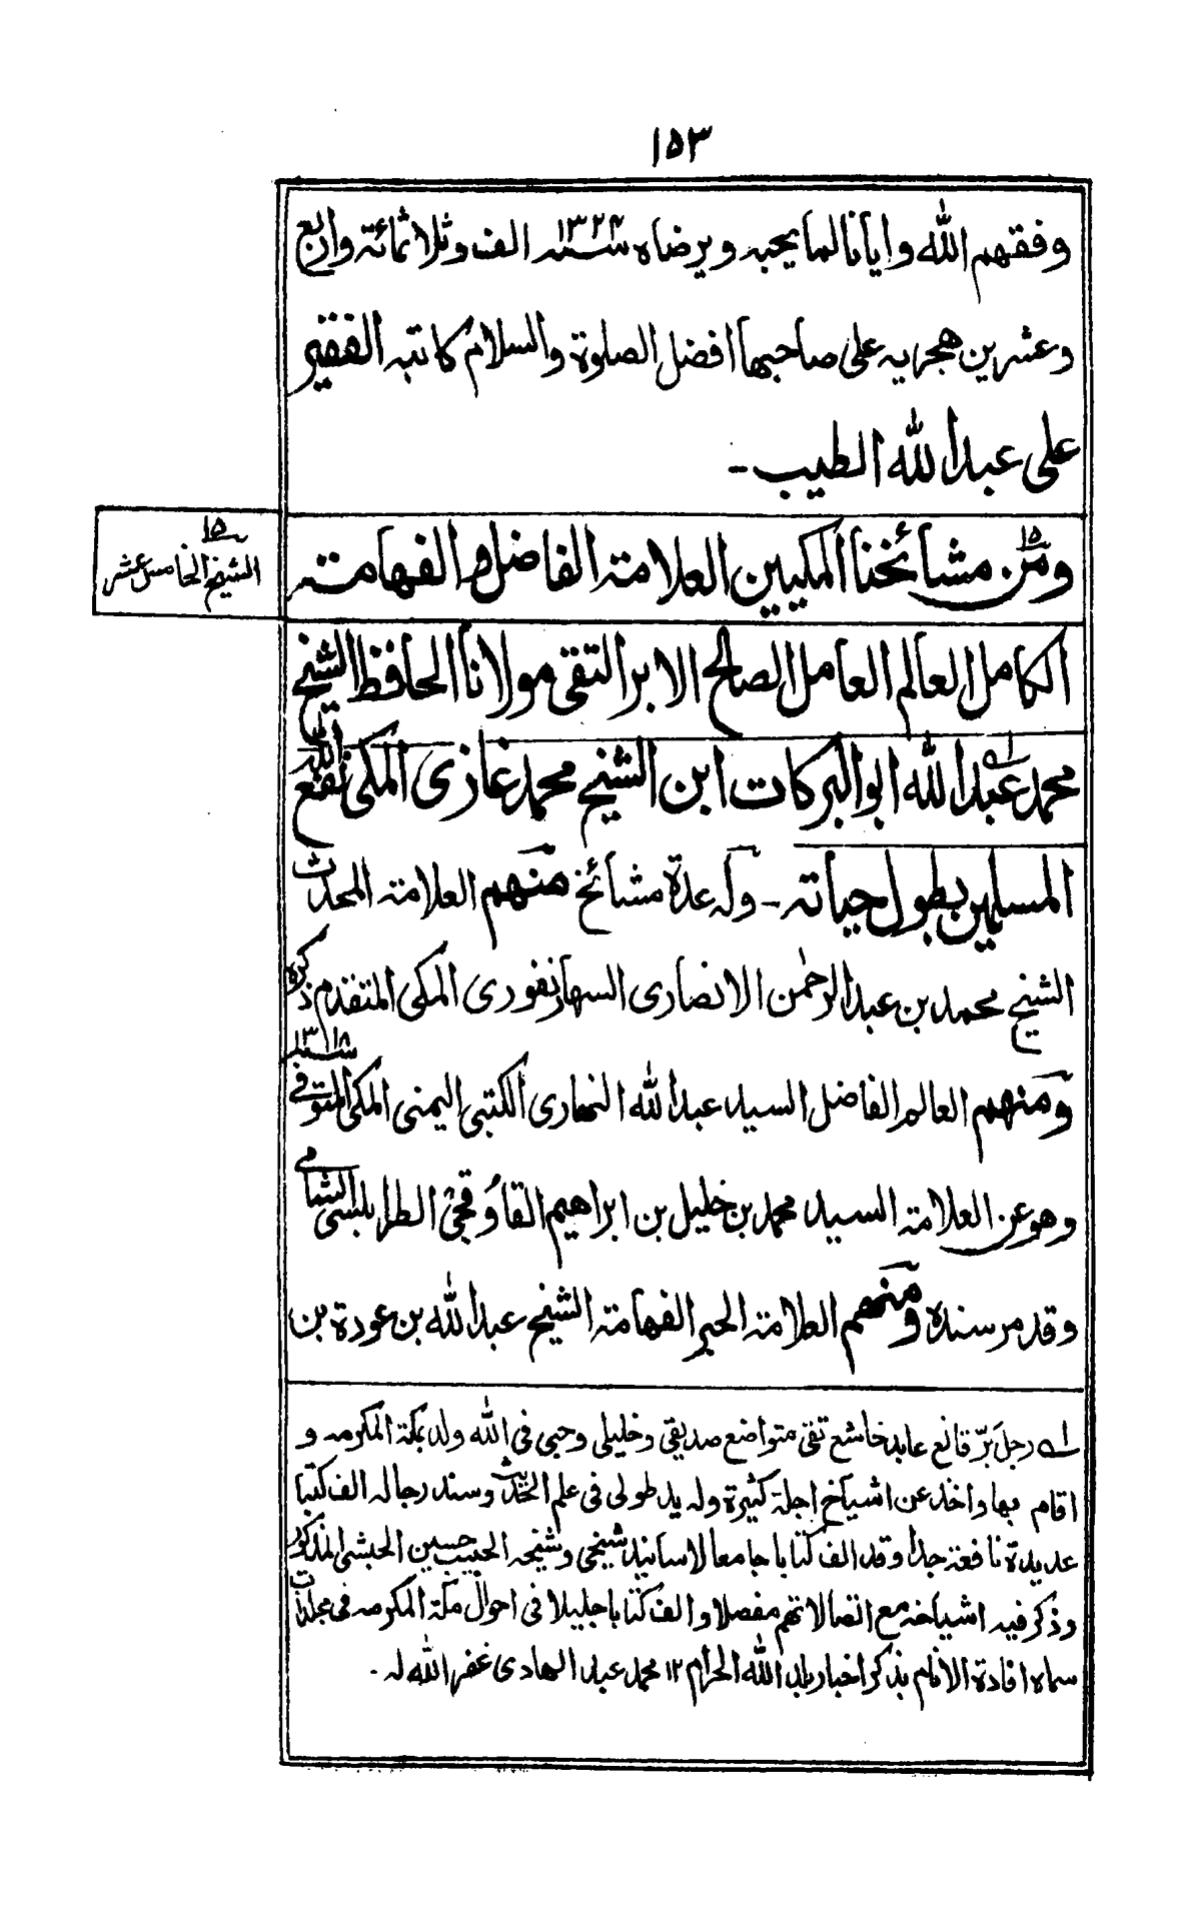 ١٥٣
وفقهم الله وايانا لما يحبه ويرضاه سنه ١٣٢٤ الف وثلاثمائة واربع
وعشرين هجريه على صاحبها افضل الصلوة والسلام كاتبه الفقير
على عبد الله الطيب -
١٥
الشيخ الخامس عشر
١٥ ومن مشائخنا المكيين العلامة الفاضل والفهامة
الكامل العالم العامل الصالح الابر التقى مولانا الحافظ الشيخ
محمد عبد الله ابو البركات ابن الشيخ محمد غازى المكى نفع الله
المسلمين بطول حياته - وله عدة مشائخ منهم العلامة المحدث
الشيخ محمد بن عبد الرحمن الانصارى السهارنفورى المكى المتقدم ذكره
ومنهم العالم الفاضل السيد عبد الله النهارى الكتبى اليمنى المكى المتوفى
وهو عن العلامة السيد محمد بن خليل بن ابراهيم القاوُقجى الطرابلسى الشامى
وقد مر سنده ومنهم العلامة الحبر الفهامة الشيخ عبد الله بن عودة بن
له رجل بَرّ قانع عابد خاشع تقى متواضع صديقى وخليلى وحبى فى الله ولد بمكة المكرمه و
اقام بها واخذ عن اشياخ اجلة كثيرة وله يد طولى فى علم الحديث وسند رجاله الف كتبا
عديدة نافعة جدا وقد الف كتابا جامعا لاسانيد شيخى وشيخه الحبيب حسين الحبشى المذكور
وذكر فيه اشياخه مع اتصالاتهم مفصلا والف كتابا جليلا فى احوال مكة المكرمه فى مجلدات
سماه افادة الانام بذكر اخبار بلد الله الحرام ١٢ محمد عبد الهادى غفر الله له .